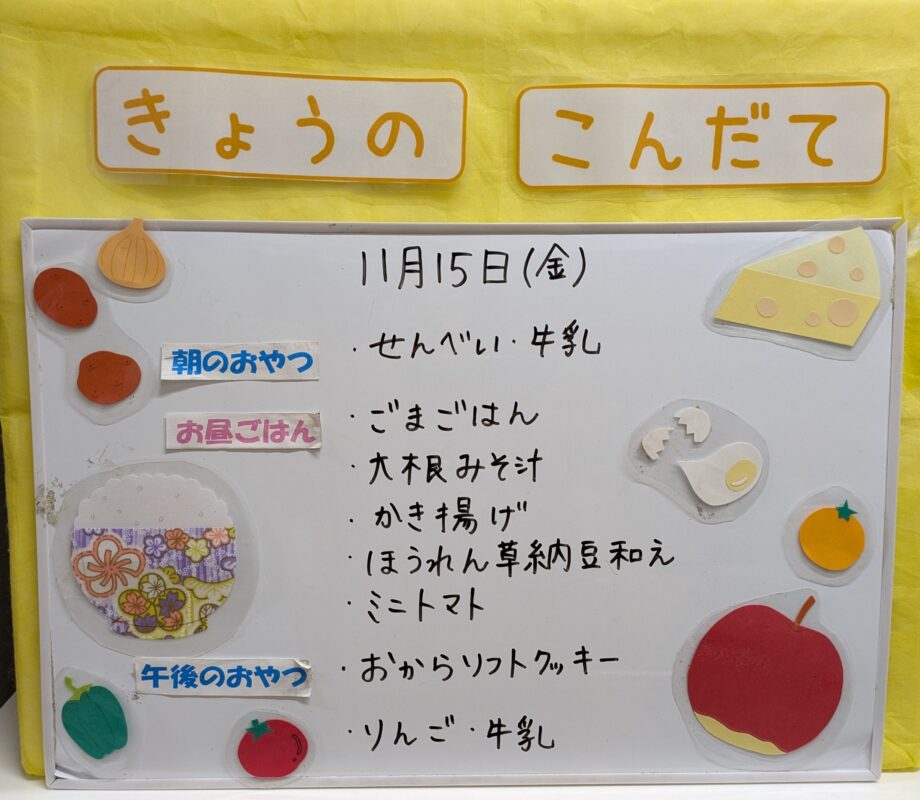 きょうの こんだて
11月15日(金)
朝のおやつ ・せんべい・牛乳
お昼ごはん ・ごまごはん
・大根みそ汁
・かき揚げ
・ほうれん草納豆和え
・ミニトマト
午後のおやつ ・おからソフトクッキー
・りんご・牛乳